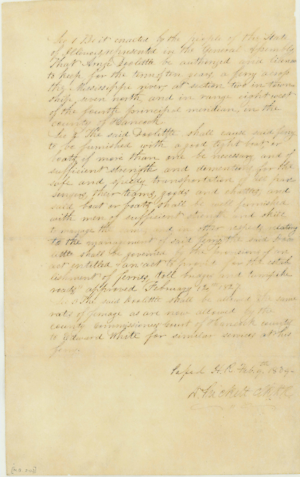 Sec 1 Be it enacted by the people of the State
of Illinois represented in the General Assembly
That be authorized and
to keep for the term of ten years, a ferry across
the Mississippi river, at section two in town
ship seven north, and in range eight west
of the fourth principal meridian, in the
county of Hancock.
Sec 2 The said shall cause said ferry
to be furnished with a good tight boat or
boats if more than one be necessary and of
sufficient strength and dimensions for the
safe and speedy transportation of all pas
sengers, their teams, goods and chattels, and
said boat or boats shall be well furnished
with men of sufficient strength and skill
to manage the same and in other respects relating
to the management of said ferry the said
shall be governed by the
act entitled "an act to provide for the estab
lishment of ferries, toll bridges and turnpike
roads" approved February 12th 1827
Sec 3 The said shall be allowed the same
rates of ferriage as are now allowed by the
county commissioners court of Hancock county
to Edward White for similar services at his
ferry.
Passed H.R. Feby 1839.